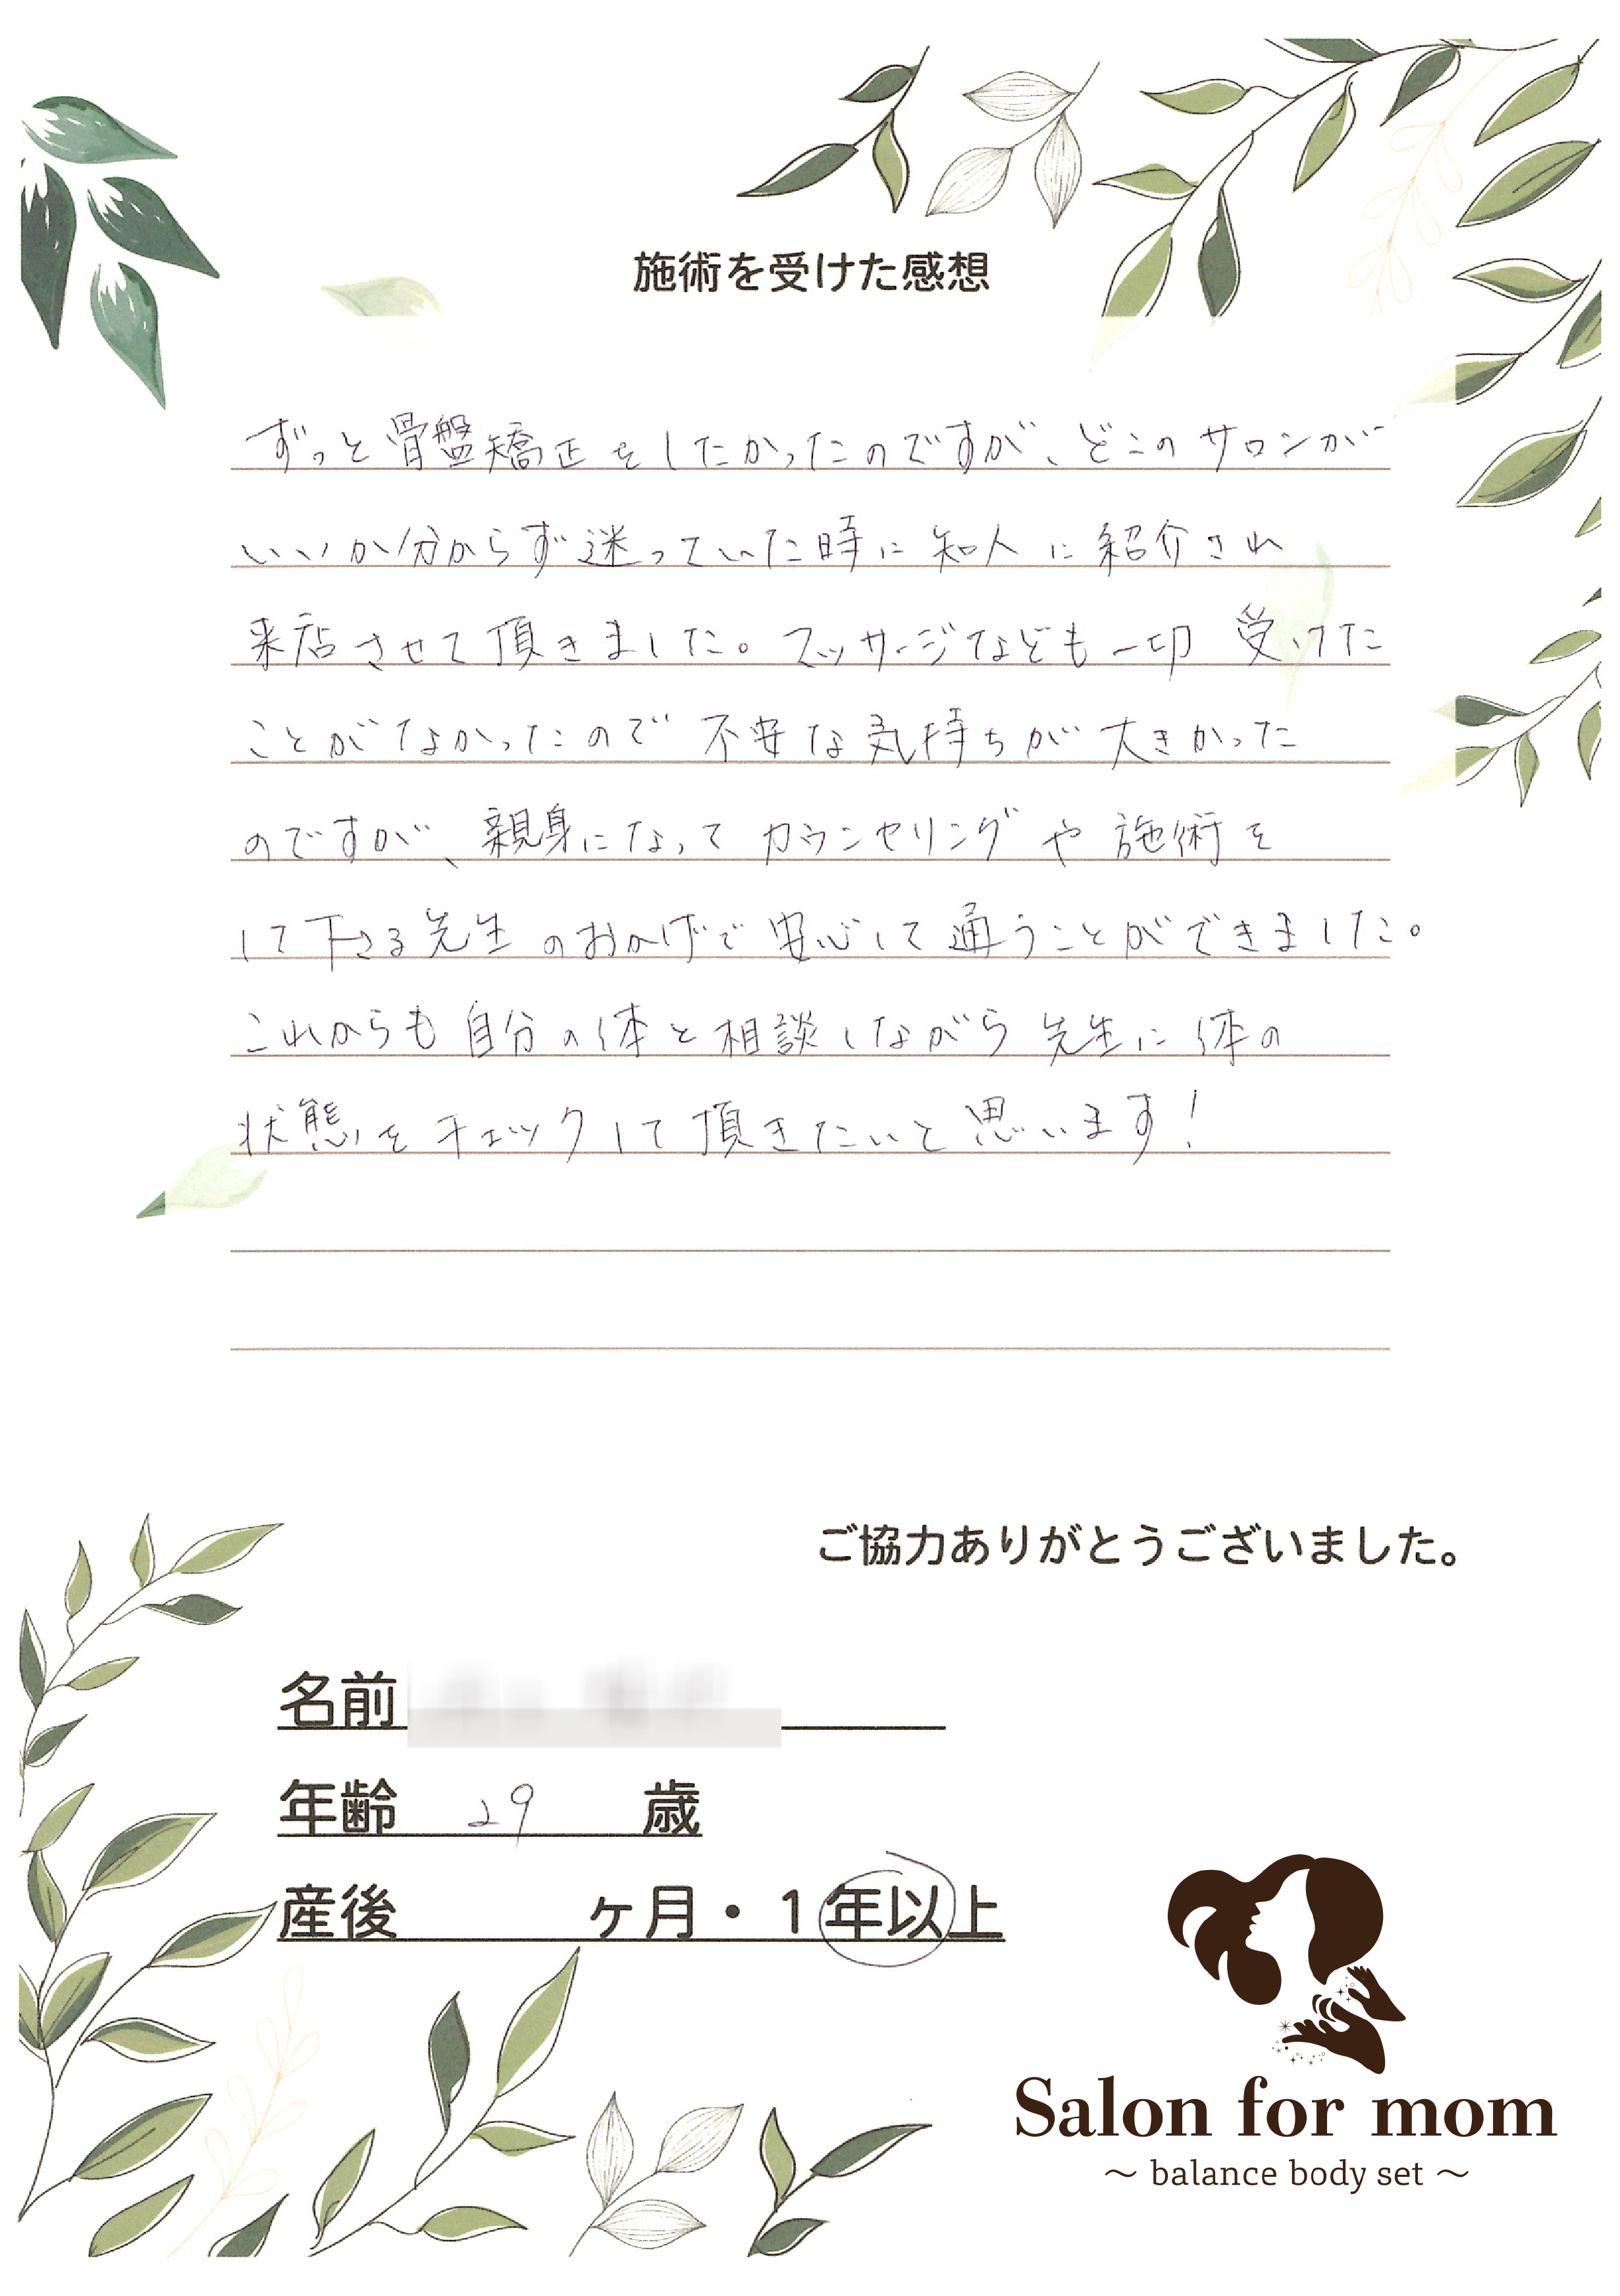 施術を受けた感想
ずっと骨盤矯正をしたかったのですが、どこのサロンが
いいか分からず迷っていた時に知人に紹介され
来店させて頂きました。マッサージなども一切受けた
ことがなかったので不安な気持ちが大きかった
のですが、親身になってカウンセリングや施術を
して下さる先生のおかげで安心して通うことができました。
これからも自分の体と相談しながら先生に体の
状態をチェックして頂きたいと思います!
ご協力ありがとうございました。
名前
年齢 29 歳
産後 ヶ月・1年以上
Salon for mom
～ balance body set ～